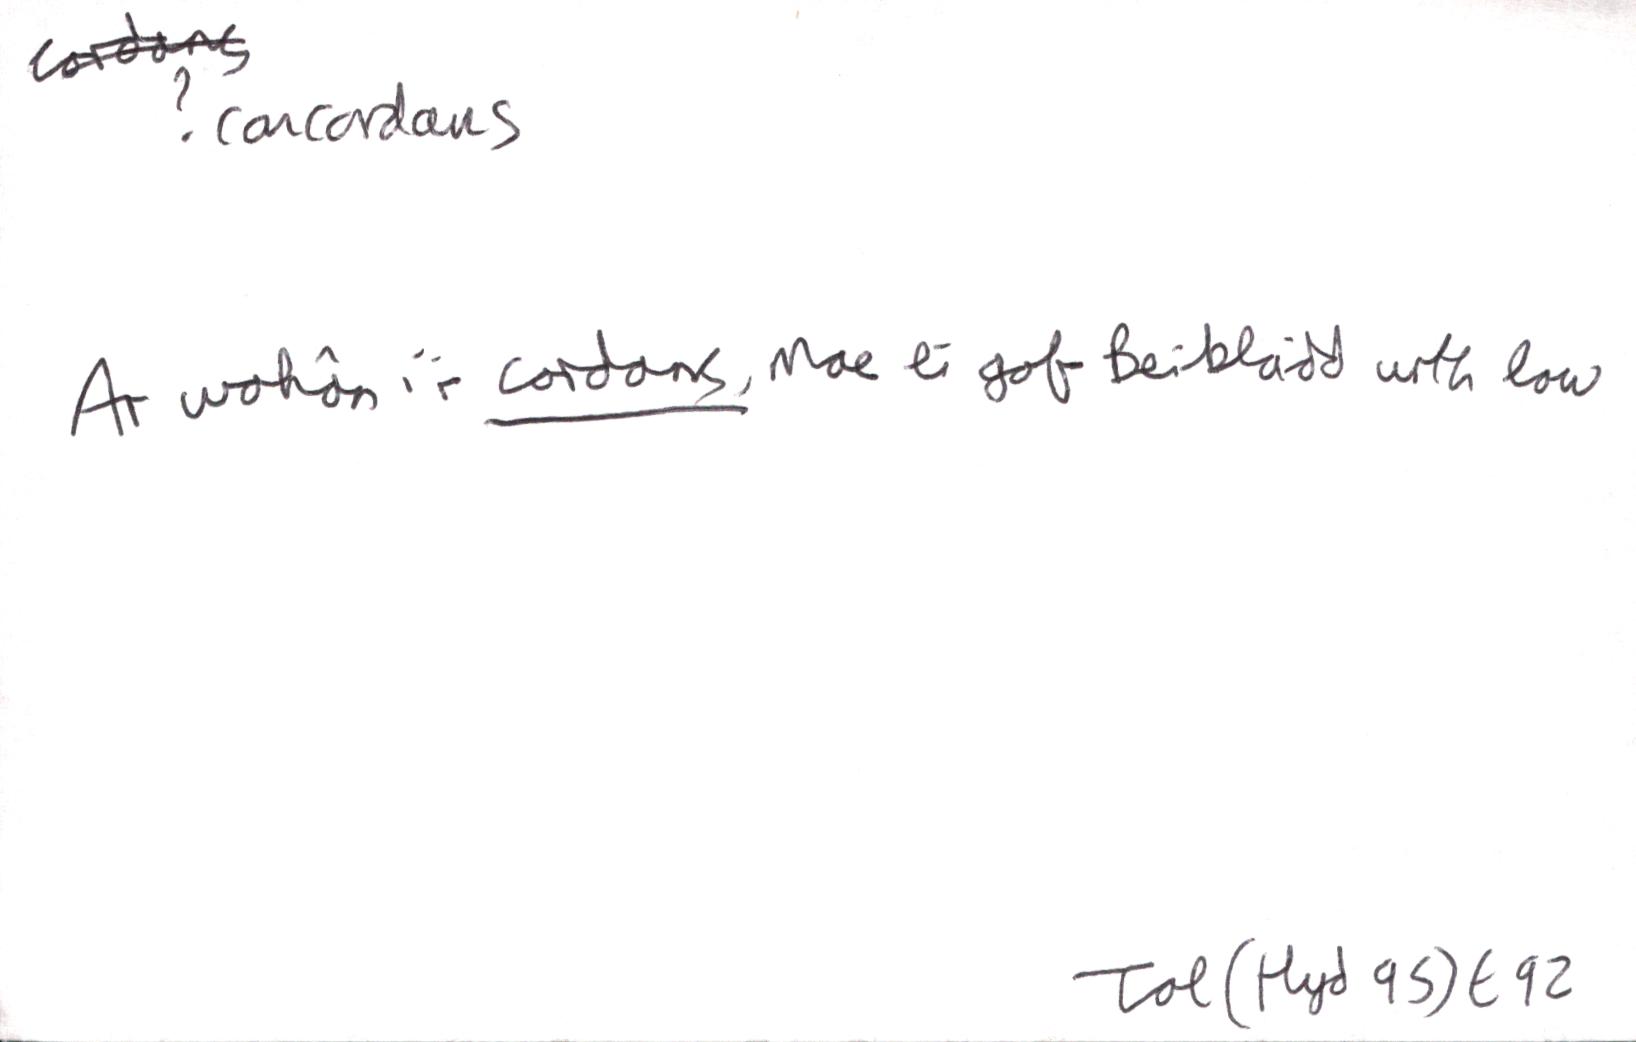 cordans
? concordans
Ar wahân i'r cordans, Mae ei gof Beiblaidd wrth law
Tol (Hyd 95) t 92